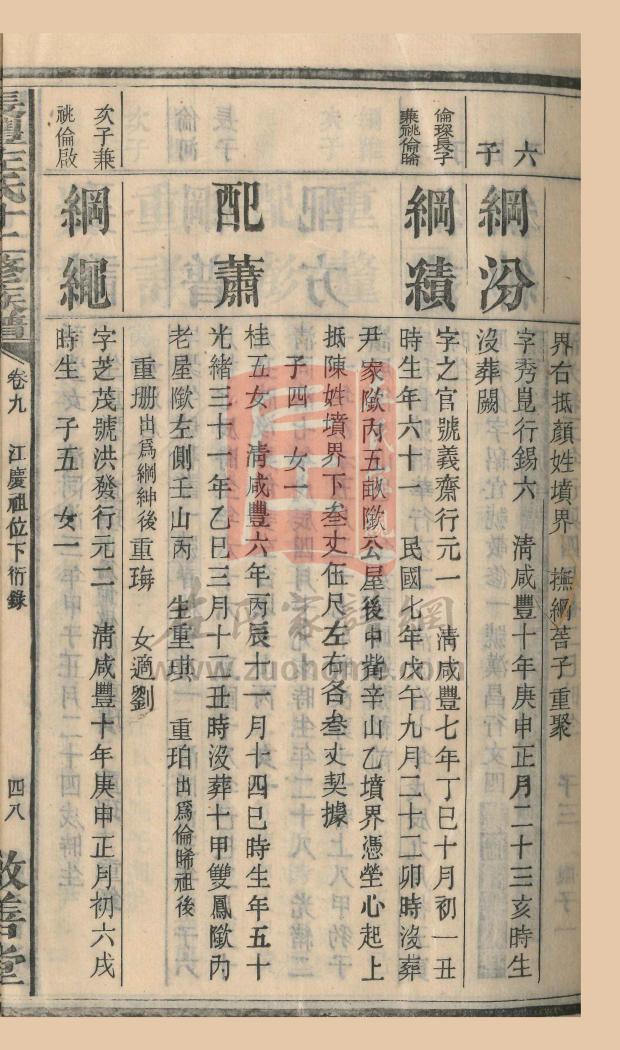 界右抵顏姓墳界　撫綱莟子重聚
六子
綱汾
字秀崑行錫六　清咸豐十年庚申正月二十三亥時生
沒葬闕
倫琛長子兼祧倫睔
綱績
字之官號義齋行元一　清咸豐七年丁巳十月初一丑
時生年六十一　民國七年戊午九月二十二卯時沒葬
尹家歘內五畝歘公屋後中嘴辛山乙墳界憑塋心起上
抵陳姓墳界下叁丈伍尺左右各叁丈契據
子四　女一
配蕭
桂五女　清咸豐六年丙辰十一月十四巳時生年五十
光緒三十一年乙巳三月十二丑時沒葬十甲雙鳳歘內
老屋歘左側壬山丙　生重琪　重珀出爲倫晞祖後
重珊出爲綱紳後重瑸　女適劉
次子兼祧倫啟
綱繩
字芝茂號洪發行元二　清咸豐十年庚申正月初六戌
時生　子五　女二
左氏十二修族譜
卷九　江慶祖位下衍錄
四八
敦善堂
左氏家譜網
www.zuohome.com